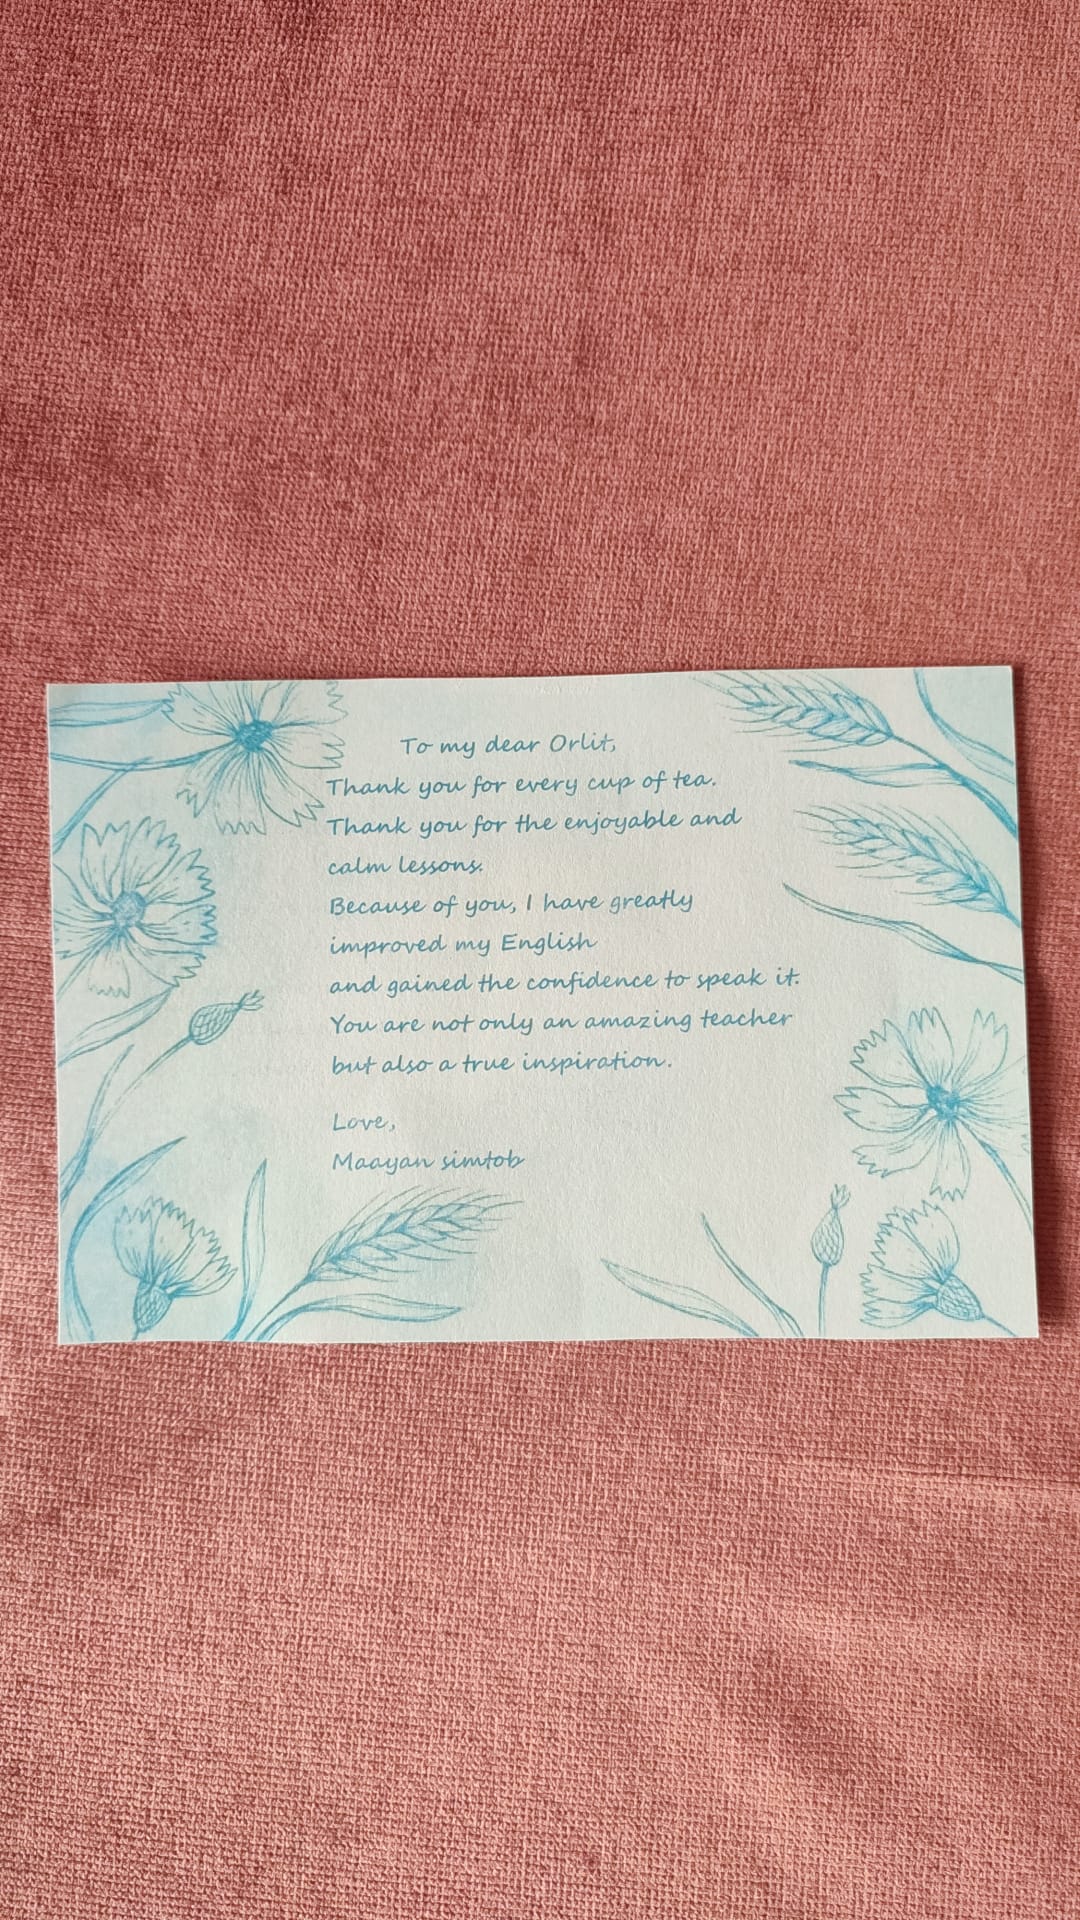 To my dear Orlit,
Thank you for every cup of tea.
Thank you for the enjoyable and
calm lessons.
Because of you, I have greatly
improved my English
and gained the confidence to speak it.
You are not only an amazing teacher
but also a true inspiration.
Love,
Maayan simtob